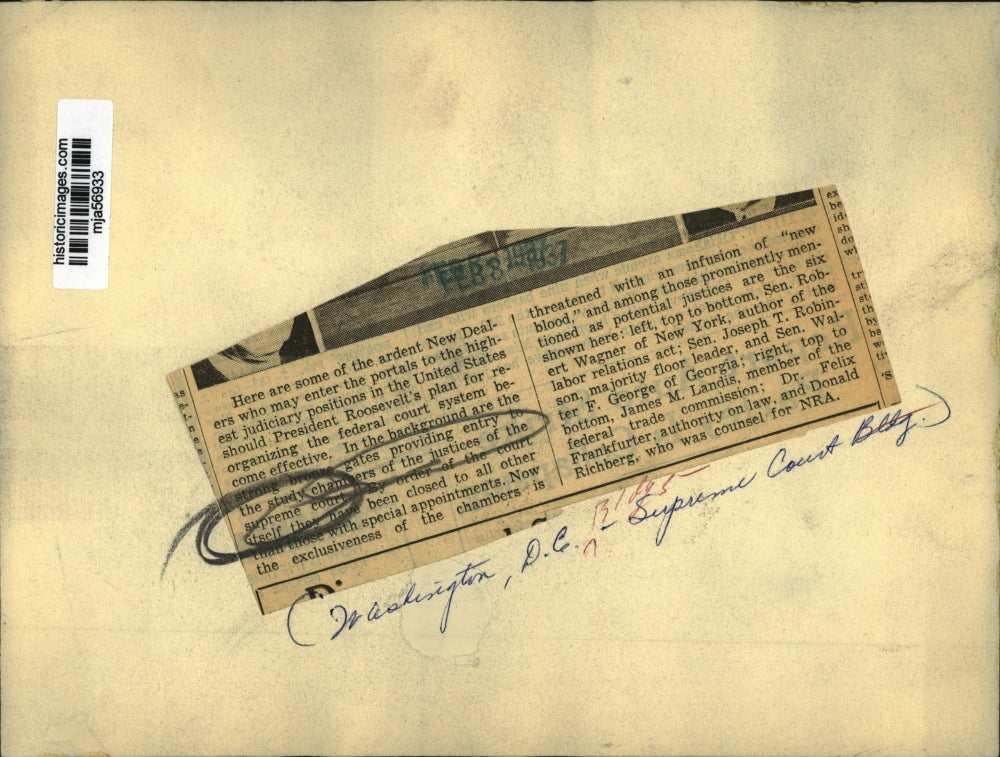 historicimages.com
mja56933
FEB 8 1937
Here are some of the ardent New Deal-
ers who may enter the portals to the high-
est judiciary positions in the United States
should President Roosevelt's plan for re-
organizing the federal court system be-
come effective. In the background are the
strong bronze gates providing entry to
the study chambers of the justices of the
supreme court. By order of the court
itself they have been closed to all other
than those with special appointments. Now
the exclusiveness of the chambers is
threatened with an infusion of "new
blood," and among those prominently men-
tioned as potential justices are the six
shown here: left, top to bottom, Sen. Rob-
ert Wagner of New York, author of the
labor relations act; Sen. Joseph T. Robin-
son, majority floor leader, and Sen. Wal-
ter F. George of Georgia; right, top to
bottom, James M. Landis, member of the
federal trade commission; Dr. Felix
Frankfurter, authority on law, and Donald
Richberg, who was counsel for NRA.
Bldgs
(Washington, D.C. - Supreme Court Bldg.)